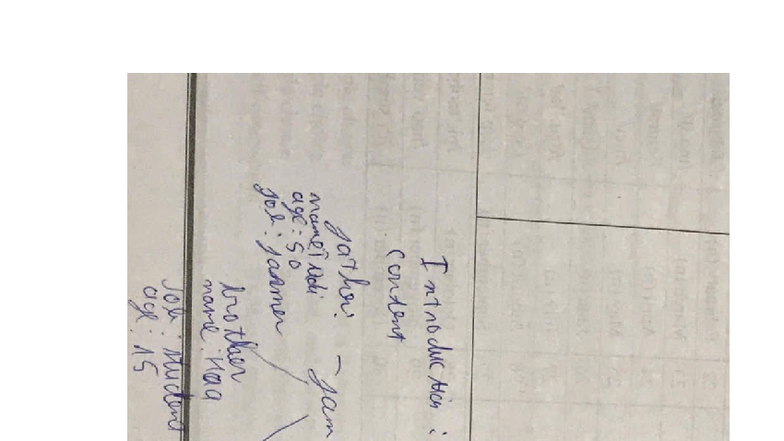 Introduction :
Content
father: - fam
age: 50
job: farmer
brother
name: Hoa
job: student
age: 15